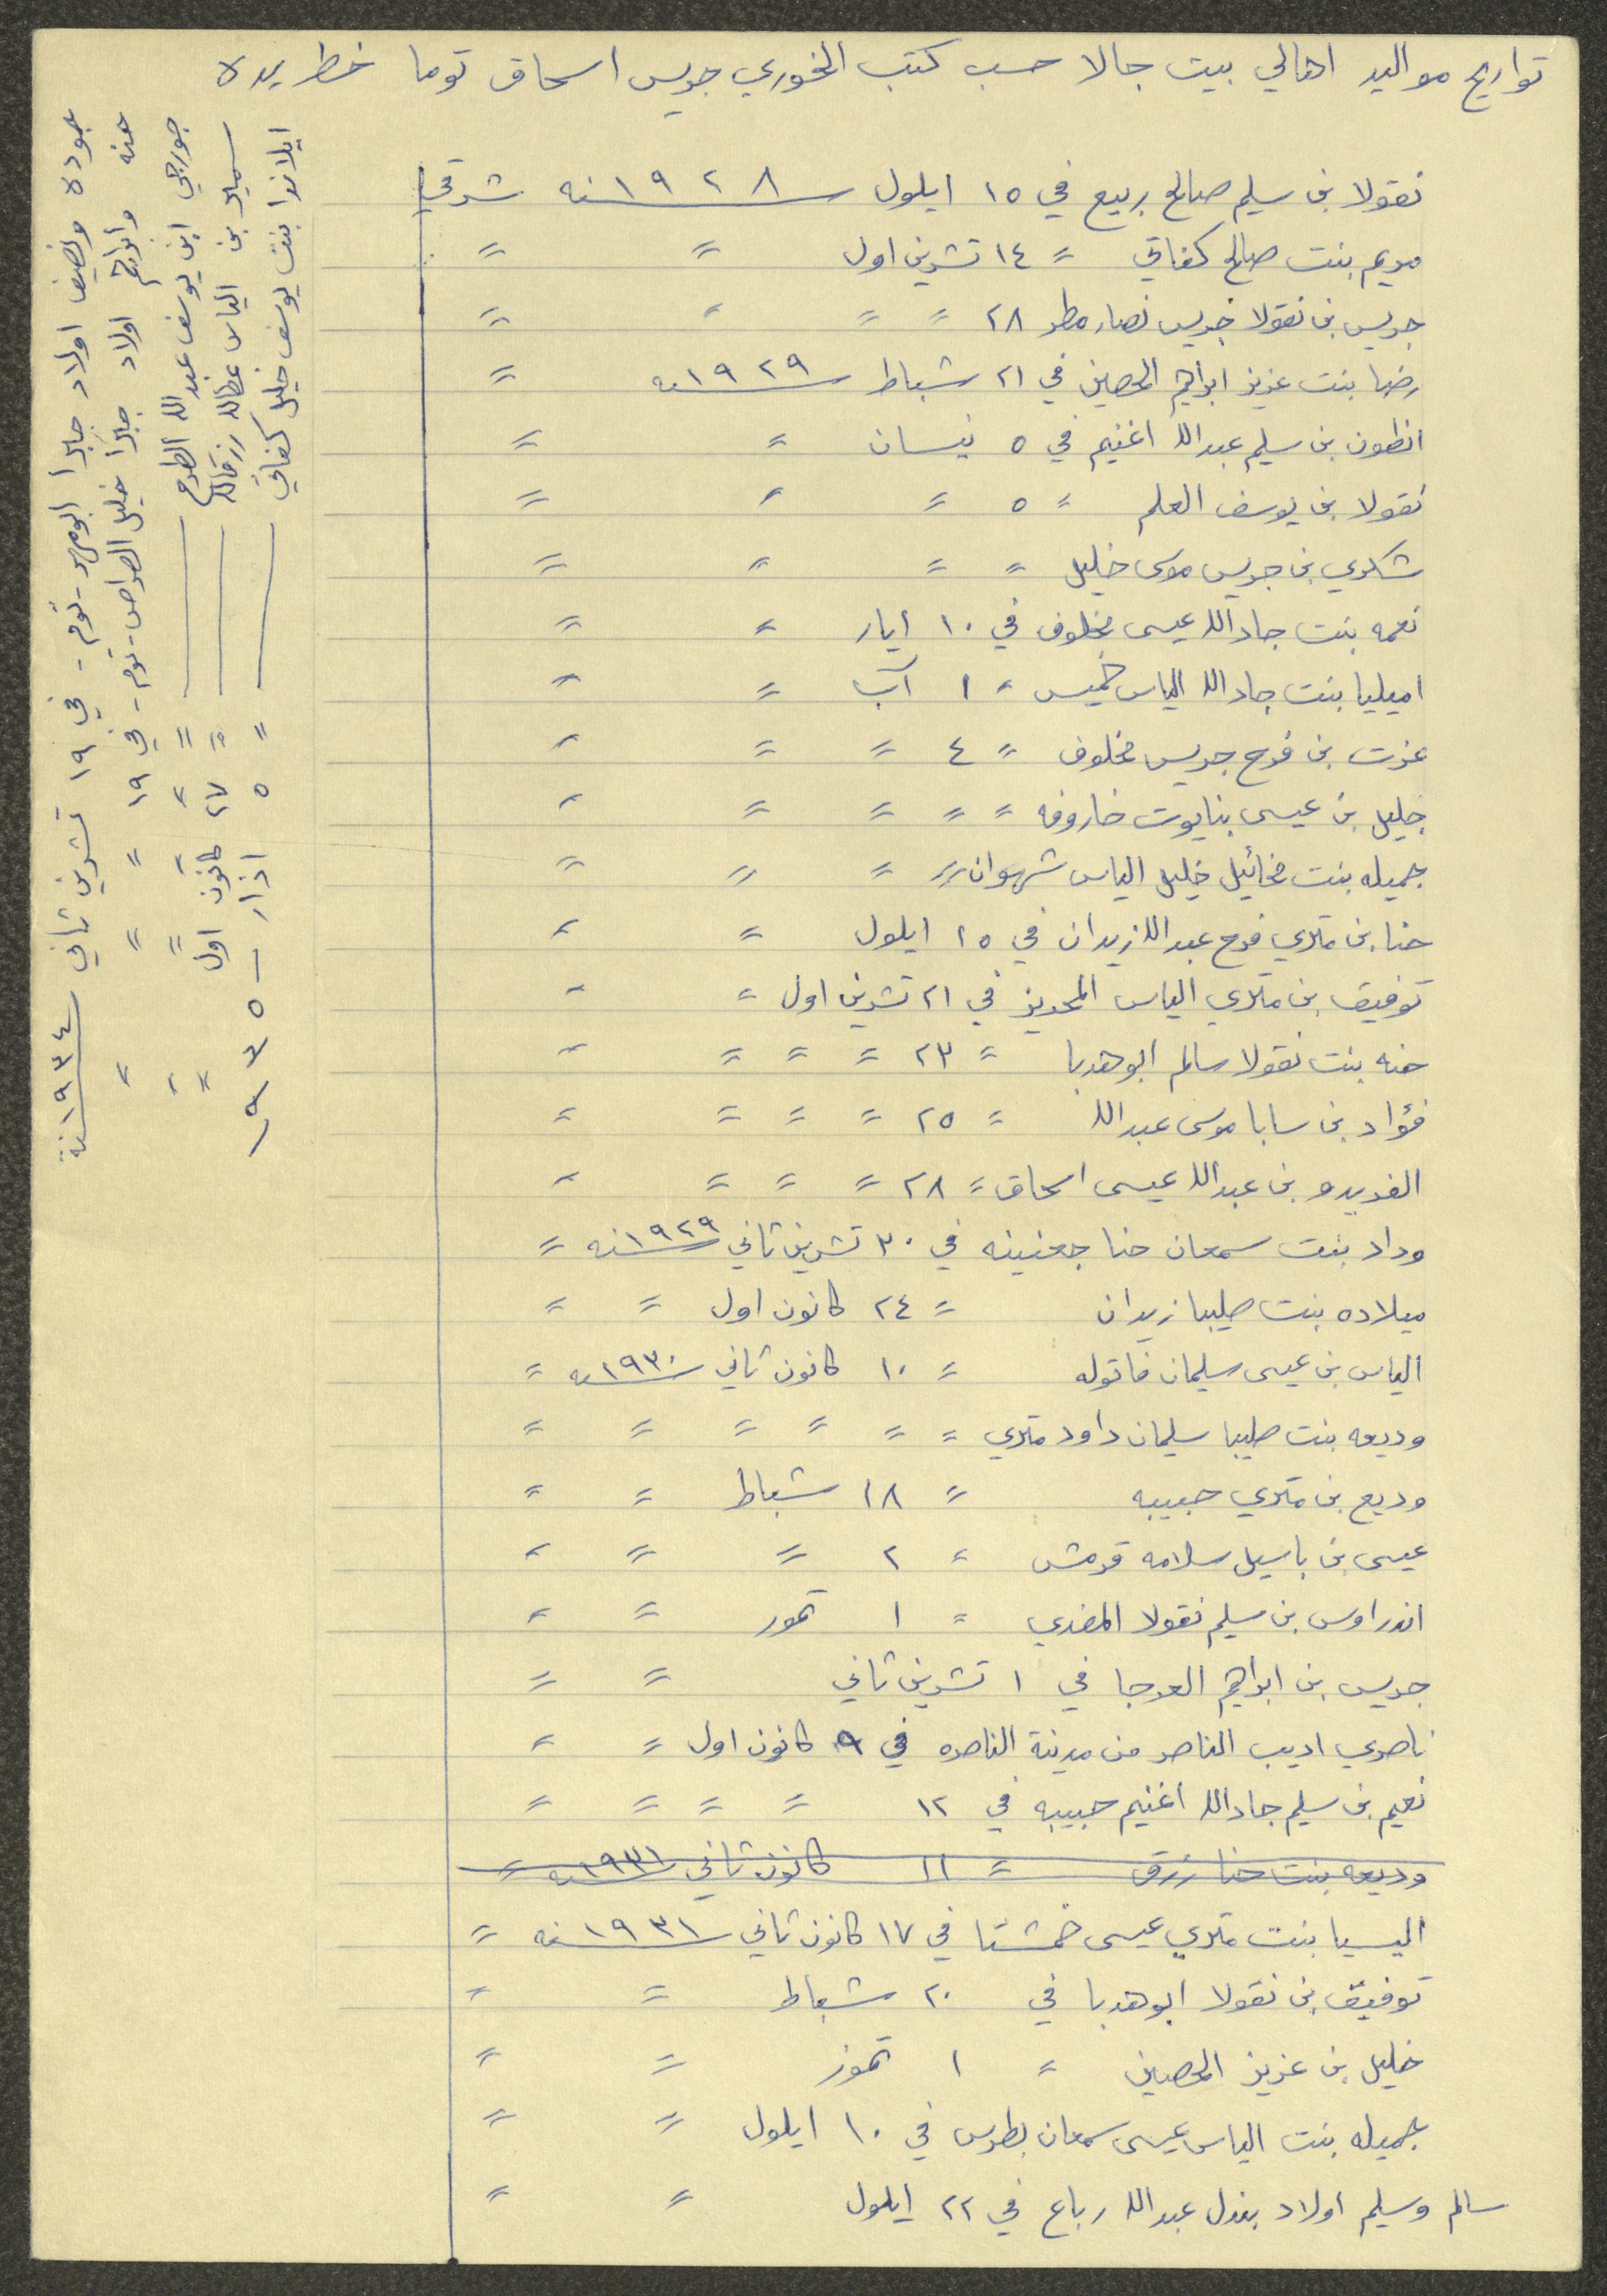 تواريخ مواليد اهالي بيت جالا حسب كتب الخوري جريس اسحاق توما خط يده
نقولا بن سليم صالح ربيع في ١٥ ايلول سنه ١٩٢٨ شرقي
مريم بنت صالح كفاتي = ١٤ تشرين اول = =
جريس بن نقولا جريس نصار مطر ٢٨ = = = =
رضا بنت عزيز ابراهيم الحصين في ٢١ شباط سنه ١٩٢٩ =
انطون بن سليم عبدالله اغنيم في ٥ نيسان = =
نقولا بن يوسف العلم = ٥ = = =
شكري بن جريس موسى خليل = = = =
نعمه بنت جادالله عيسى مخلوف في ١٠ أيار = =
اميليا بنت جادالله الياس خميس = ١ آب = =
عزت بن فرح جريس مخلوف = ٤ = = =
جليل بن عيسى بنايوت خاروفه = = = = =
جميله بنت مخائيل خليل الياس شهوان = = = =
حنا بن متري فرح عبدالله زيدان في ١٥ ايلول = =
توفيق بن متري الياس المحريز في ٢١ تشرين اول = =
حنه بنت نقولا سالم ابوهدبا = ٢٣ = = = =
فؤاد بن سابا موسى عبدالله = ٢٥ = = = =
الفريدو بن عبدالله عيسى اسحاق = ٢٨ = = = =
وداد بنت سمعان حنا جعنينه في ٣٠ تشرين ثاني سنه ١٩٢٩ =
ميلاده بنت صليبا زيدان = ٢٤ كانون اول = =
الياس بن عيسى سليمان فاتوله = ١٠ كانون ثاني سنه ١٩٣٠ =
وديعه بنت صليبا سليمان داود متري = = = = = =
وديع بن متري حبيبه = ١٨ شباط = =
عيسى بن باسيل سلامه قرمش = ٢ = = =
اندراوس بن سليم نقولا المفدي = ١ تموز = =
جريس بن ابراهيم العرجا في ١ تشرين ثاني = =
ناصري اديب الناصر من مدينة الناصره في ٩ كانون اول = =
نعيم بن سليم جادالله اغنيم حبيبه في ١٢ = = = =
وديعه بنت حنا رزق = ١١ كانون ثاني سنه ١٩٣١ =
اليسيا بنت متري عيسى خمشتا في ١٧ كانون ثاني سنه ١٩٣١ =
توفيق بن نقولا ابوهدبا في ٢٠ شباط = =
خليل بن عزيز الحصين = ١ تموز = =
جميله بنت الياس عيسى سمعان بطرس في ١٠ ايلول = =
سالم وسليم اولاد بندل عبدالله رباع في ٢٢ ايلول = =
حموده ونصيف اولاد جبرا - توم - في ١٩ تشرين ثاني سنة ١٩٣٤
حنه وابراهيم اولاد جبرا خليل الصراص - توم - في ١٩ = = =
جورجي ابن يوسف عبدالله الطرح = = = = =
سمير بن الياس عطالله رزقالله = ٢٧ كانون اول =
ايلاندا بنت يوسف خليل كفاتي = ٥ اذار - ١٩٣٥